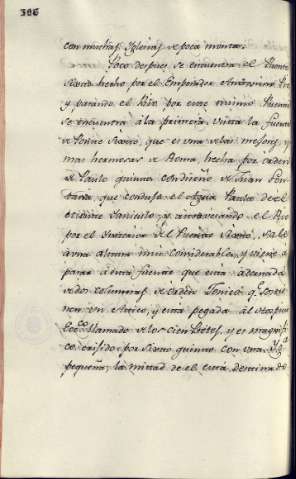 386
con muchas Iglesias de poca monta.
Poco despues se encuentra el Puente
Sixto hecho por el Emperador Antonino Pio
y pasando el Rio por este mismo Puente
se encuentra á la primera vista la fuente
de Ponte Sixto, que es una de las mejores, y
mas hermosas de Roma hecha por orden
de Paulo quinto con diseño de Juan Fon
tana que condujo el Agua Paula desde el
vecino Janiculo, y atravesando el Rio
por el interior del Puente Sixto, sale
á una altura mui considerable, y viene á
parar á esta fuente que está adornada
de dos columnas de orden Jonico qe. sostie
nen un Atico, y está pegada al
llamado de los cien Pobres, y es magnifi
co erijido por Sixto quinto con una Yg.
pequeña; la mitad de el está destina da